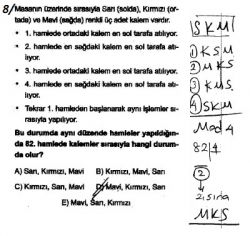 8/ Masanın üzerinde sırasıyla Sarı (solda), Kırmızı (or-
tada) ve Mavi (sağda) renkli üç adet kalem vardır.
• 1. hamlede ortadaki kalem en sol tarafa atılıyor.
• 2. hamlede en sağdaki kalem en sol tarafa atı-
lıyor.
• 3. hamlede ortadaki kalem en sol tarafa atılıyor.
• 4. hamlede en sağdaki kalem en sol tarafa atı-
lıyor.
• Tekrar 1. hamleden başlanarak aynı işlemler sı-
rasıyla yapılıyor.
Bu durumda aynı düzende hamleler yapıldığın-
da 82. hamlede kalemler sırasıyla hangi durum-
da olur?
A) Sarı, Kırmızı, Mavi B) Kırmızı, Mavi, Sarı
C) Kırmızı, Sarı, Mavi D) Mavi, Kırmızı, Sarı
E) Mavi, Sarı, Kırmızı
SKM
1) KSM
2) MKS
3) KMS
4) SKM
Mod 4
82 4
2
2.sıra
MKS